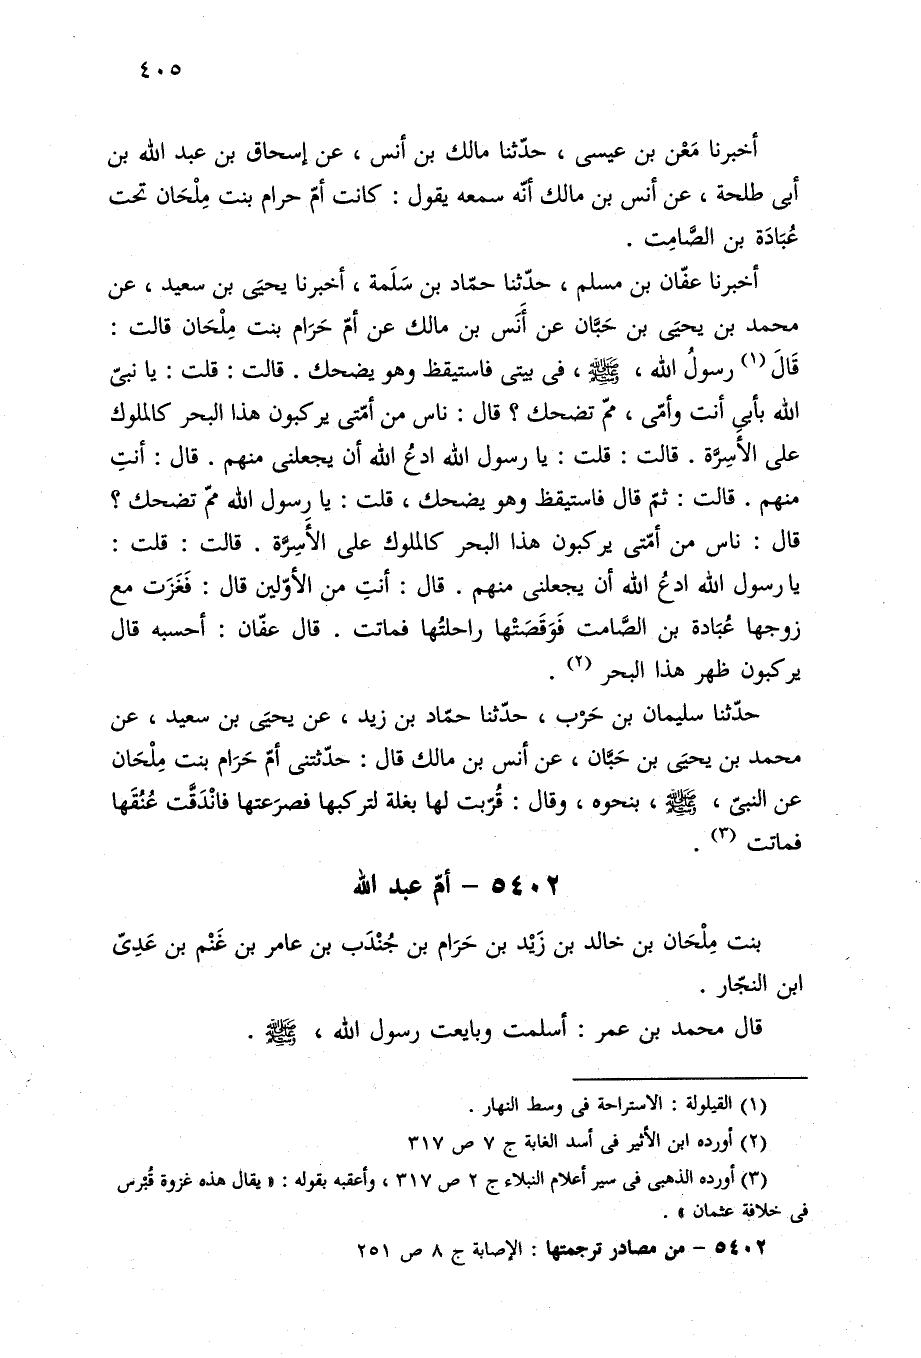 ٤٠٥
أخبرنا مَعْن بن عيسى ، حدّثنا مالك بن أنس ، عن إسحاق بن عبد الله بن
أبى طلحة ، عن أنس بن مالك أنّه سمعه يقول : كانت أمّ حرام بنت مِلْحَان تحت
عُبَادَة بن الصَّامِت .
أخبرنا عفّان بن مسلم ، حدّثنا حمّاد بن سَلَمة ، أخبرنا يحيَى بن سعيد ، عن
محمد بن يحيَى بن حَبَّان عن أَنَس بن مالك عن أمّ حَرَام بنت مِلْحَان قالت :
قَالَ (١) رسولُ الله ، ﷺ ، فى بيتى فاستيقظ وهو يضحك . قالت : قلت : يا نبىّ
الله بأبى أنت وأمّى ، ممّ تضحك ؟ قال : ناس من أمّتى يركبون هذا البحر كالملوك
على الأَسِرَّة . قالت : قلت : يا رسول الله ادعُ الله أن يجعلنى منهم . قال : أنتِ
منهم . قالت : ثمّ قال فاستيقظ وهو يضحك ، قلت : يا رسول الله ممّ تضحك ؟
قال : ناس من أمّتى يركبون هذا البحر كالملوك على الأَسِرَّة . قالت : قلت :
يا رسول الله ادعُ الله أن يجعلنى منهم . قال : أنتِ من الأوّلين قال : فَغَزَت مع
زوجها عُبَادة بن الصَّامت فَوَقَصَتْها راحلتُها فماتت . قال عفّان : أحسبه قال
يركبون ظهر هذا البحر (٢) .
حدّثنا سليمان بن حَرْب ، حدّثنا حمّاد بن زيد ، عن يحيَى بن سعيد ، عن
محمد بن يحيَى بن حَبَّان ، عن أنس بن مالك قال : حدّثتنى أمّ حَرَام بنت مِلْحَان
عن النبىّ ، ﷺ ، بنحوه ، وقال : قُرّبت لها بغلة لتركبها فصرَعتها فانْدَقَّت عُنُقَها
فماتت (٣) .
٥٤٠٢ – أمّ عبد الله
بنت مِلْحَان بن خالد بن زَيْد بن حَرَام بن جُنْدَب بن عامر بن غَنْم بن عَدِىّ
ابن النجّار .
قال محمد بن عمر : أسلمت وبايعت رسول الله ، ﷺ .
(١) القيلولة : الاستراحة فى وسط النهار .
(٢) أورده ابن الأثير فى أسد الغابة ج ٧ ص ٣١٧
(٣) أورده الذهبى فى سير أعلام النبلاء ج ٢ ص ٣١٧ ، وأعقبه بقوله : « يقال هذه غزوة قُبْرس
فى خلافة عثمان » .
٥٤٠٢ – من مصادر ترجمتها : الإصابة ج ٨ ص ٢٥١